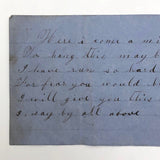 Were I comer a mi
Do hang this may b
I have run so hard
For fear you would b
I will give you this
I say by all above